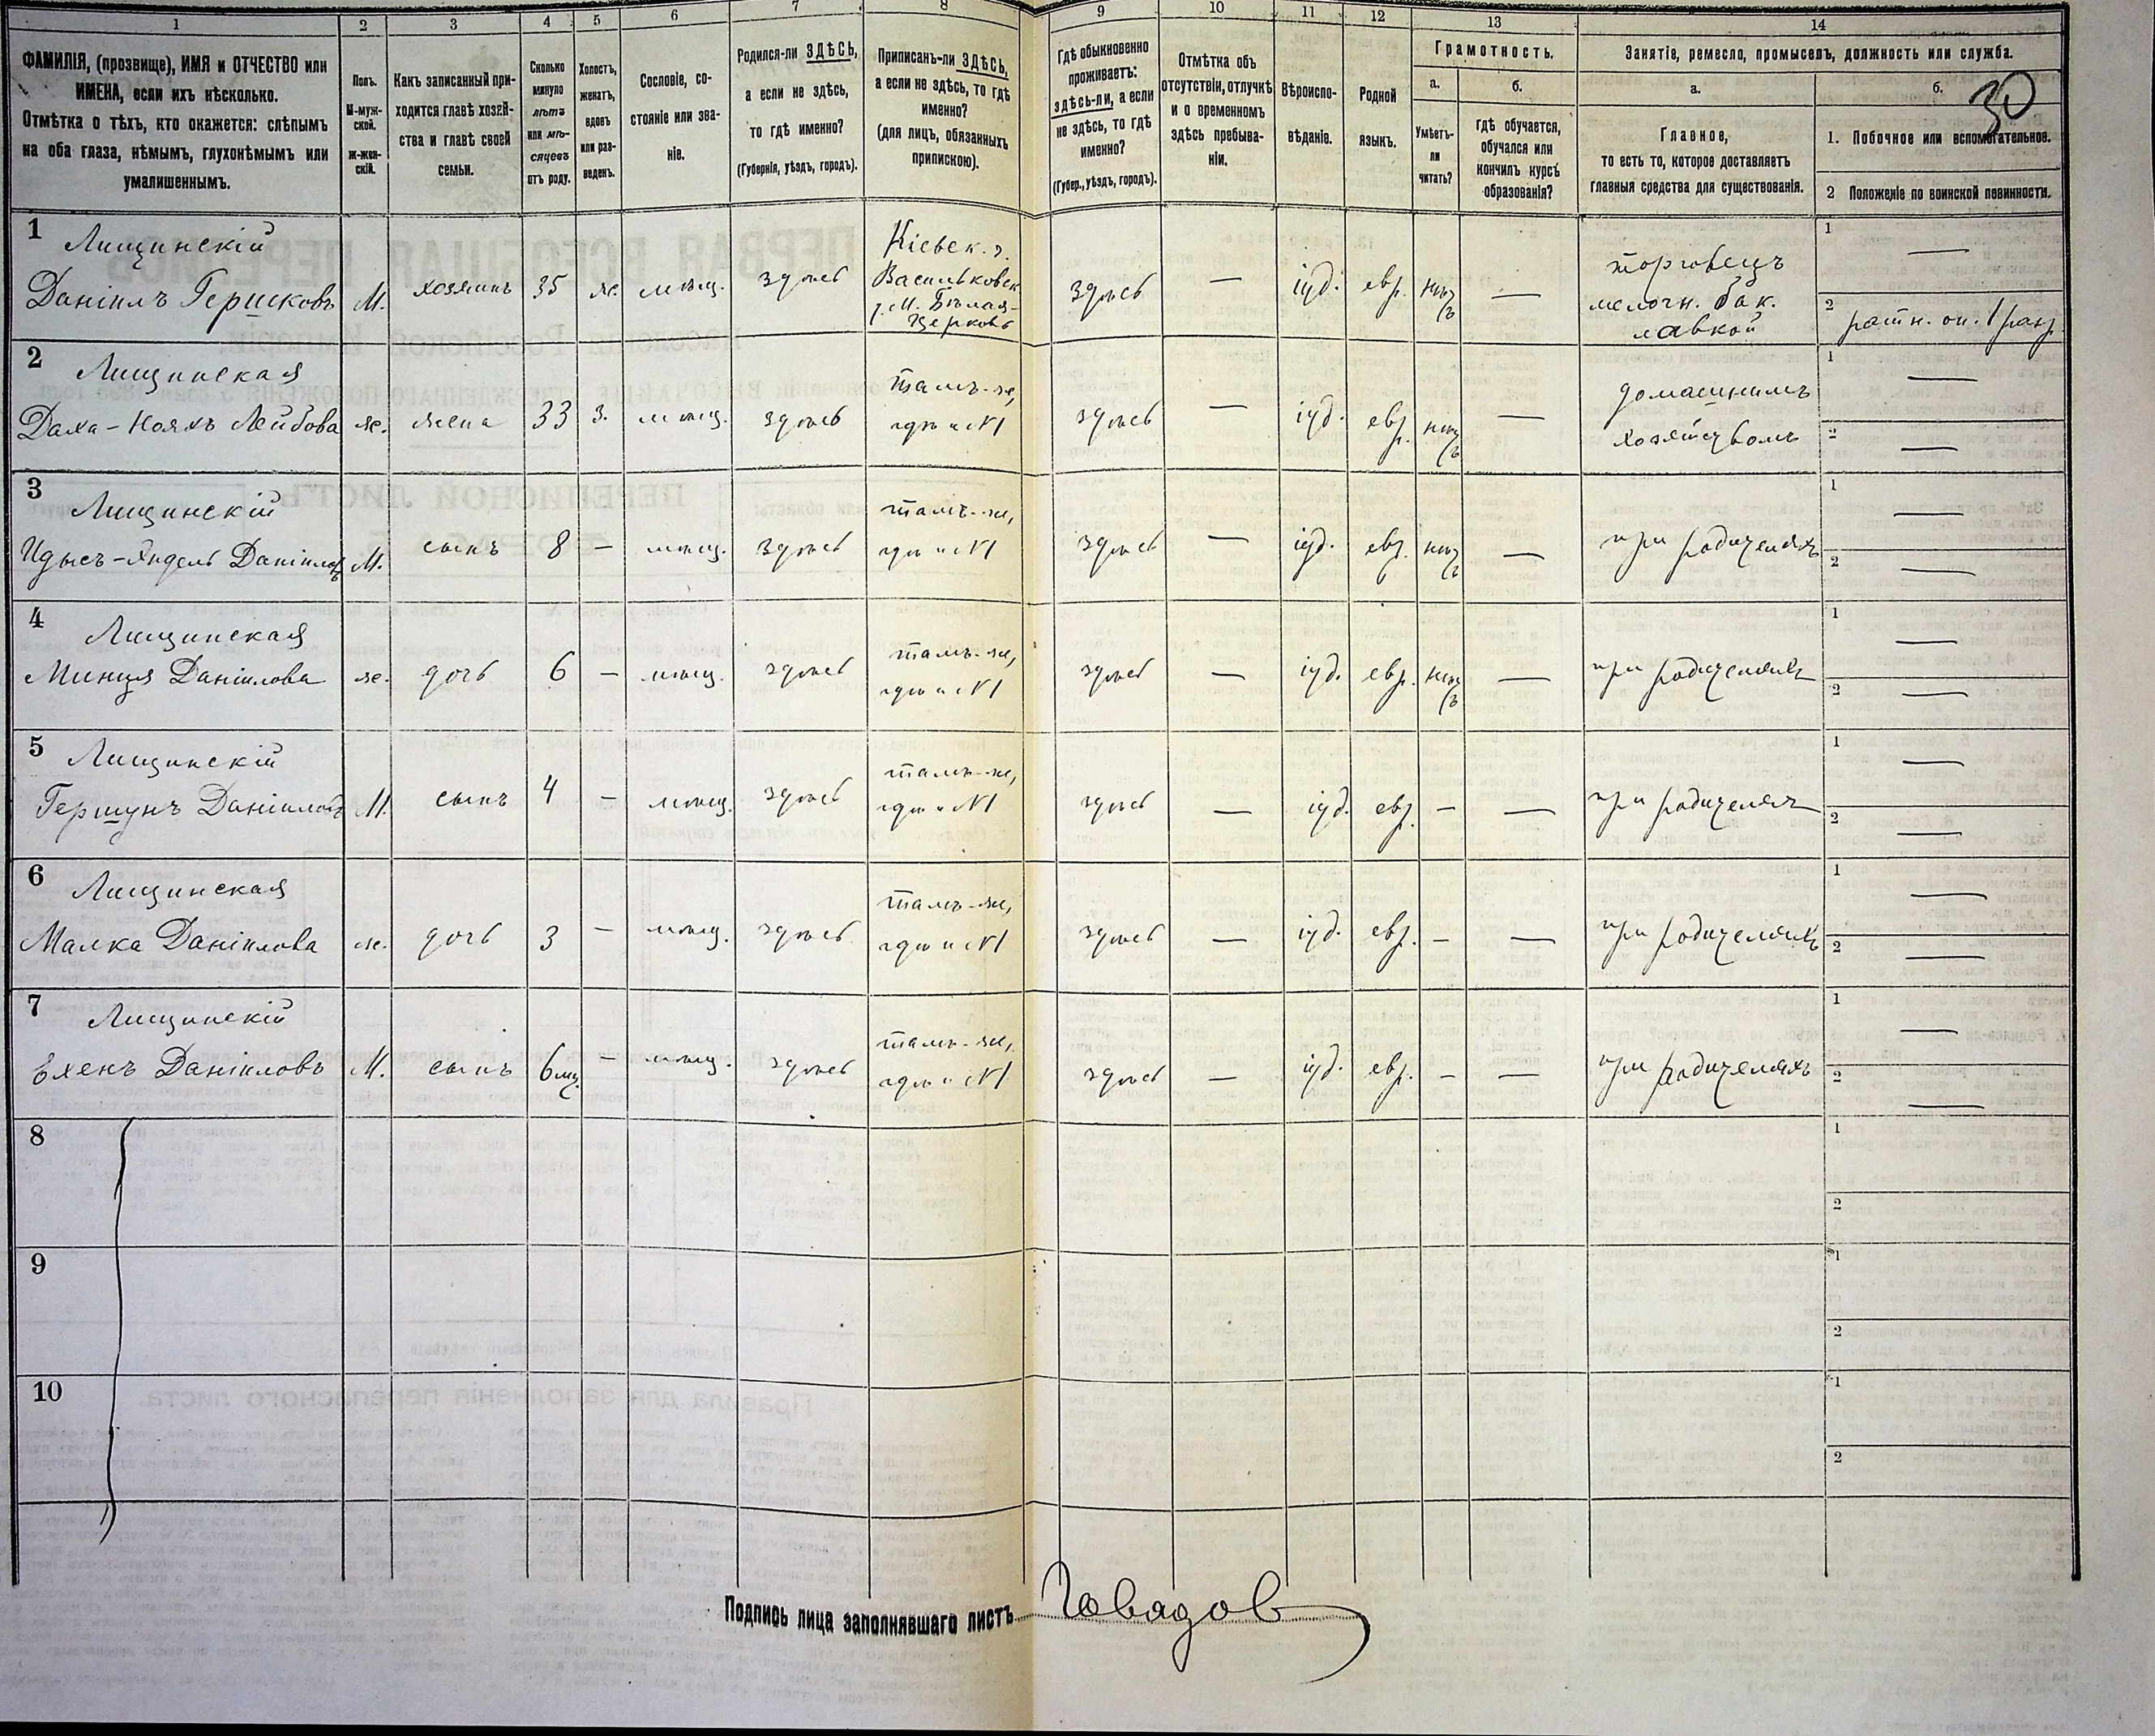 1 2 3 4 5 6 7 8 9 10 11 12 13 14
ФАМИЛІЯ, (прозвище), ИМЯ и ОТЧЕСТВО или
ИМЕНА, если ихъ нѣсколько.
Отмѣтка о тѣхъ, кто окажется: слѣпымъ
на оба глаза, нѣмымъ, глухонѣмымъ или
умалишеннымъ.
Полъ.
М-муж-
ской.
Ж-жен-
скій.
Какъ записанный при-
ходится главѣ хозяй-
ства и главѣ своей
семьи.
Сколько
минуло
лѣтъ
или мѣ-
сяцевъ
отъ роду.
Холостъ,
женатъ,
вдовъ
или раз-
веденъ.
Сословіе, со-
стояніе или зва-
ніе.
Родился-ли ЗДѢСЬ,
а если не здѣсь,
то гдѣ именно?
(Губернія, уѣздъ, городъ).
Приписанъ-ли ЗДѢСЬ,
а если не здѣсь, то гдѣ
именно?
(для лицъ, обязанныхъ
припискою).
Гдѣ обыкновенно
проживаетъ:
здѣсь-ли, а если
не здѣсь, то гдѣ
именно?
(Губер., уѣздъ, городъ).
Отмѣтка объ
отсутствіи, отлучкѣ
и о временномъ
здѣсь пребыва-
ніи.
Вѣроиспо-
вѣданіе.
Родной
языкъ.
Грамотность.
а.
Умѣетъ-
ли
читать?
б.
гдѣ обучается,
обучался или
кончилъ курсъ
образованія?
Занятіе, ремесло, промыселъ, должность или служба.
а.
Главное,
то есть то, которое доставляетъ
главныя средства для существованія.
б.
30
1. Побочное или вспомогательное.
2 Положеніе по воинской повинности.
1
Лищинскій
Даніилъ Гершковъ М. хозяинъ 35 ж. мѣщ. здѣсь
Кіевск. г.
Васильковск.
у. М. Бѣлая-
Церковь
здѣсь — іуд. евр. нѣтъ —
торговецъ
мелочн. бак.
лавкой
1 —
2 ратн. оп. 1 разр.
2
Лищинская
Даха-Нояхъ Лейбова ж. жена 33 з. мѣщ. здѣсь
тамъ-же,
гдѣ и №1
здѣсь — іуд. евр. нѣтъ —
домашнимъ
хозяйствомъ
1 —
2 —
3
Лищинскій
Идысъ-Яндель Даніиловъ М. сынъ 8 — мѣщ. здѣсь
тамъ-же,
гдѣ и №1
здѣсь — іуд. евр. нѣтъ — при родителяхъ
1 —
2 —
4
Лищинская
Минця Даніилова ж. дочь 6 — мѣщ. здѣсь
тамъ-же,
гдѣ и №1
здѣсь — іуд. евр. нѣтъ — при родителяхъ
1 —
2 —
5
Лищинскій
Гершунъ Даніиловъ М. сынъ 4 — мѣщ. здѣсь
тамъ-же,
гдѣ и №1
здѣсь — іуд. евр. — — при родителяхъ
1 —
2 —
6
Лищинская
Малка Даніилова ж. дочь 3 — мѣщ. здѣсь
тамъ-же,
гдѣ и №1
здѣсь — іуд. евр. — — при родителяхъ
1 —
2 —
7
Лищинскій
Ехенъ Даніиловъ М. сынъ 6 мц. — мѣщ. здѣсь
тамъ-же,
гдѣ и №1
здѣсь — іуд. евр. — — при родителяхъ
1 —
2 —
8
1
2
9
1
2
10
1
2
Подпись лица заполнявшаго листъ